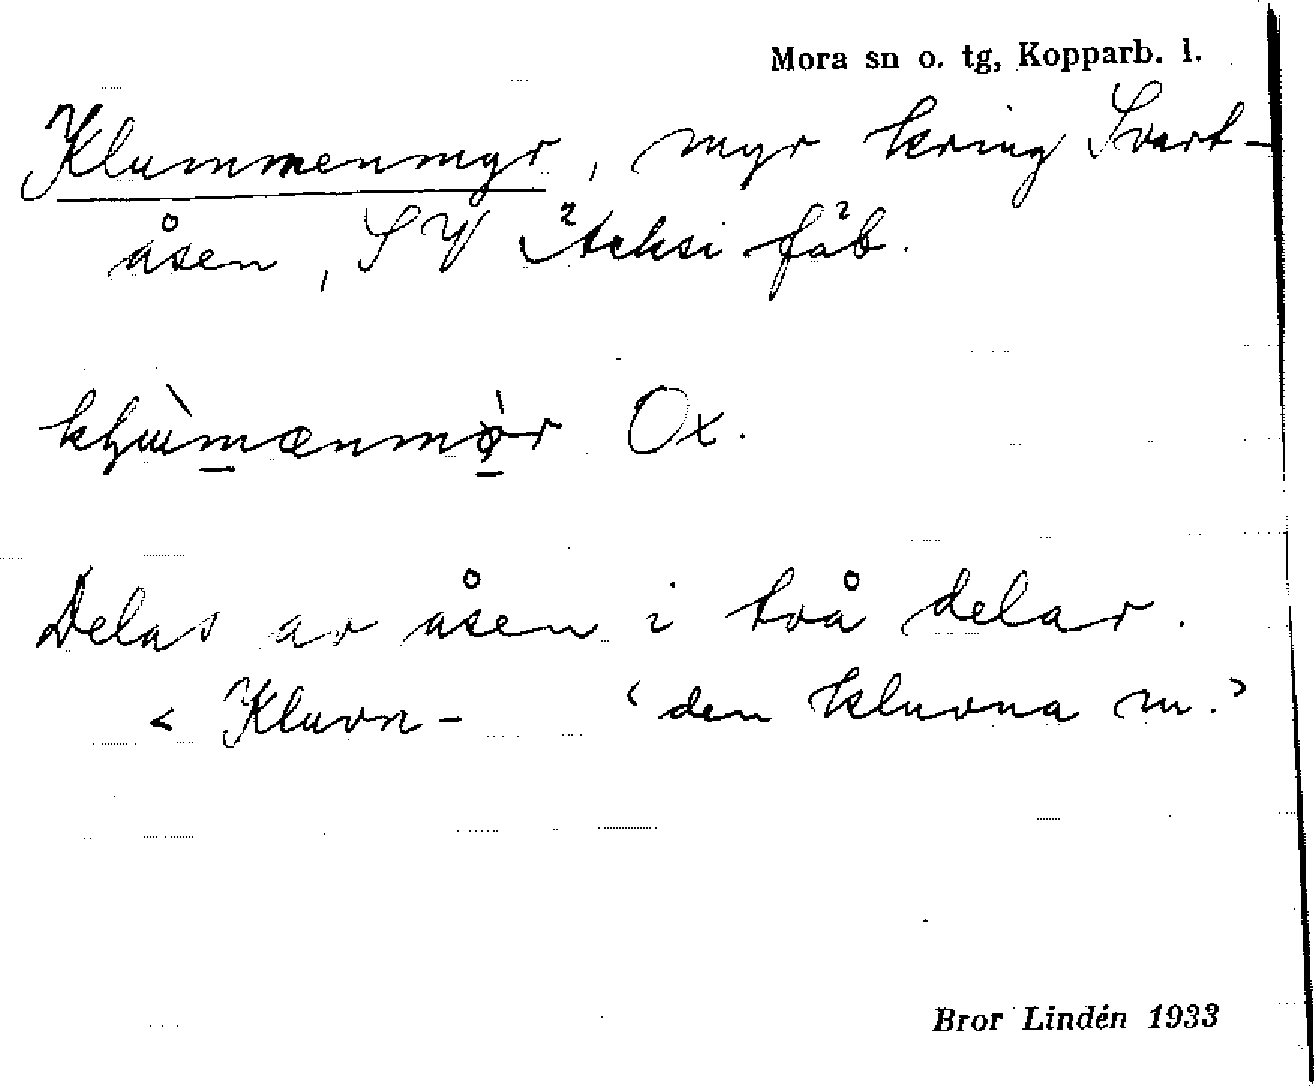 Mora sn o. tg, Kopparb. l.
Klummenmyr, myr kring Svart-
åsen, SV fäb.
Ox.
Delas av åsen i två delar.
< Kluvn- ‘den kluvna m.’
Bror Lindén 1933